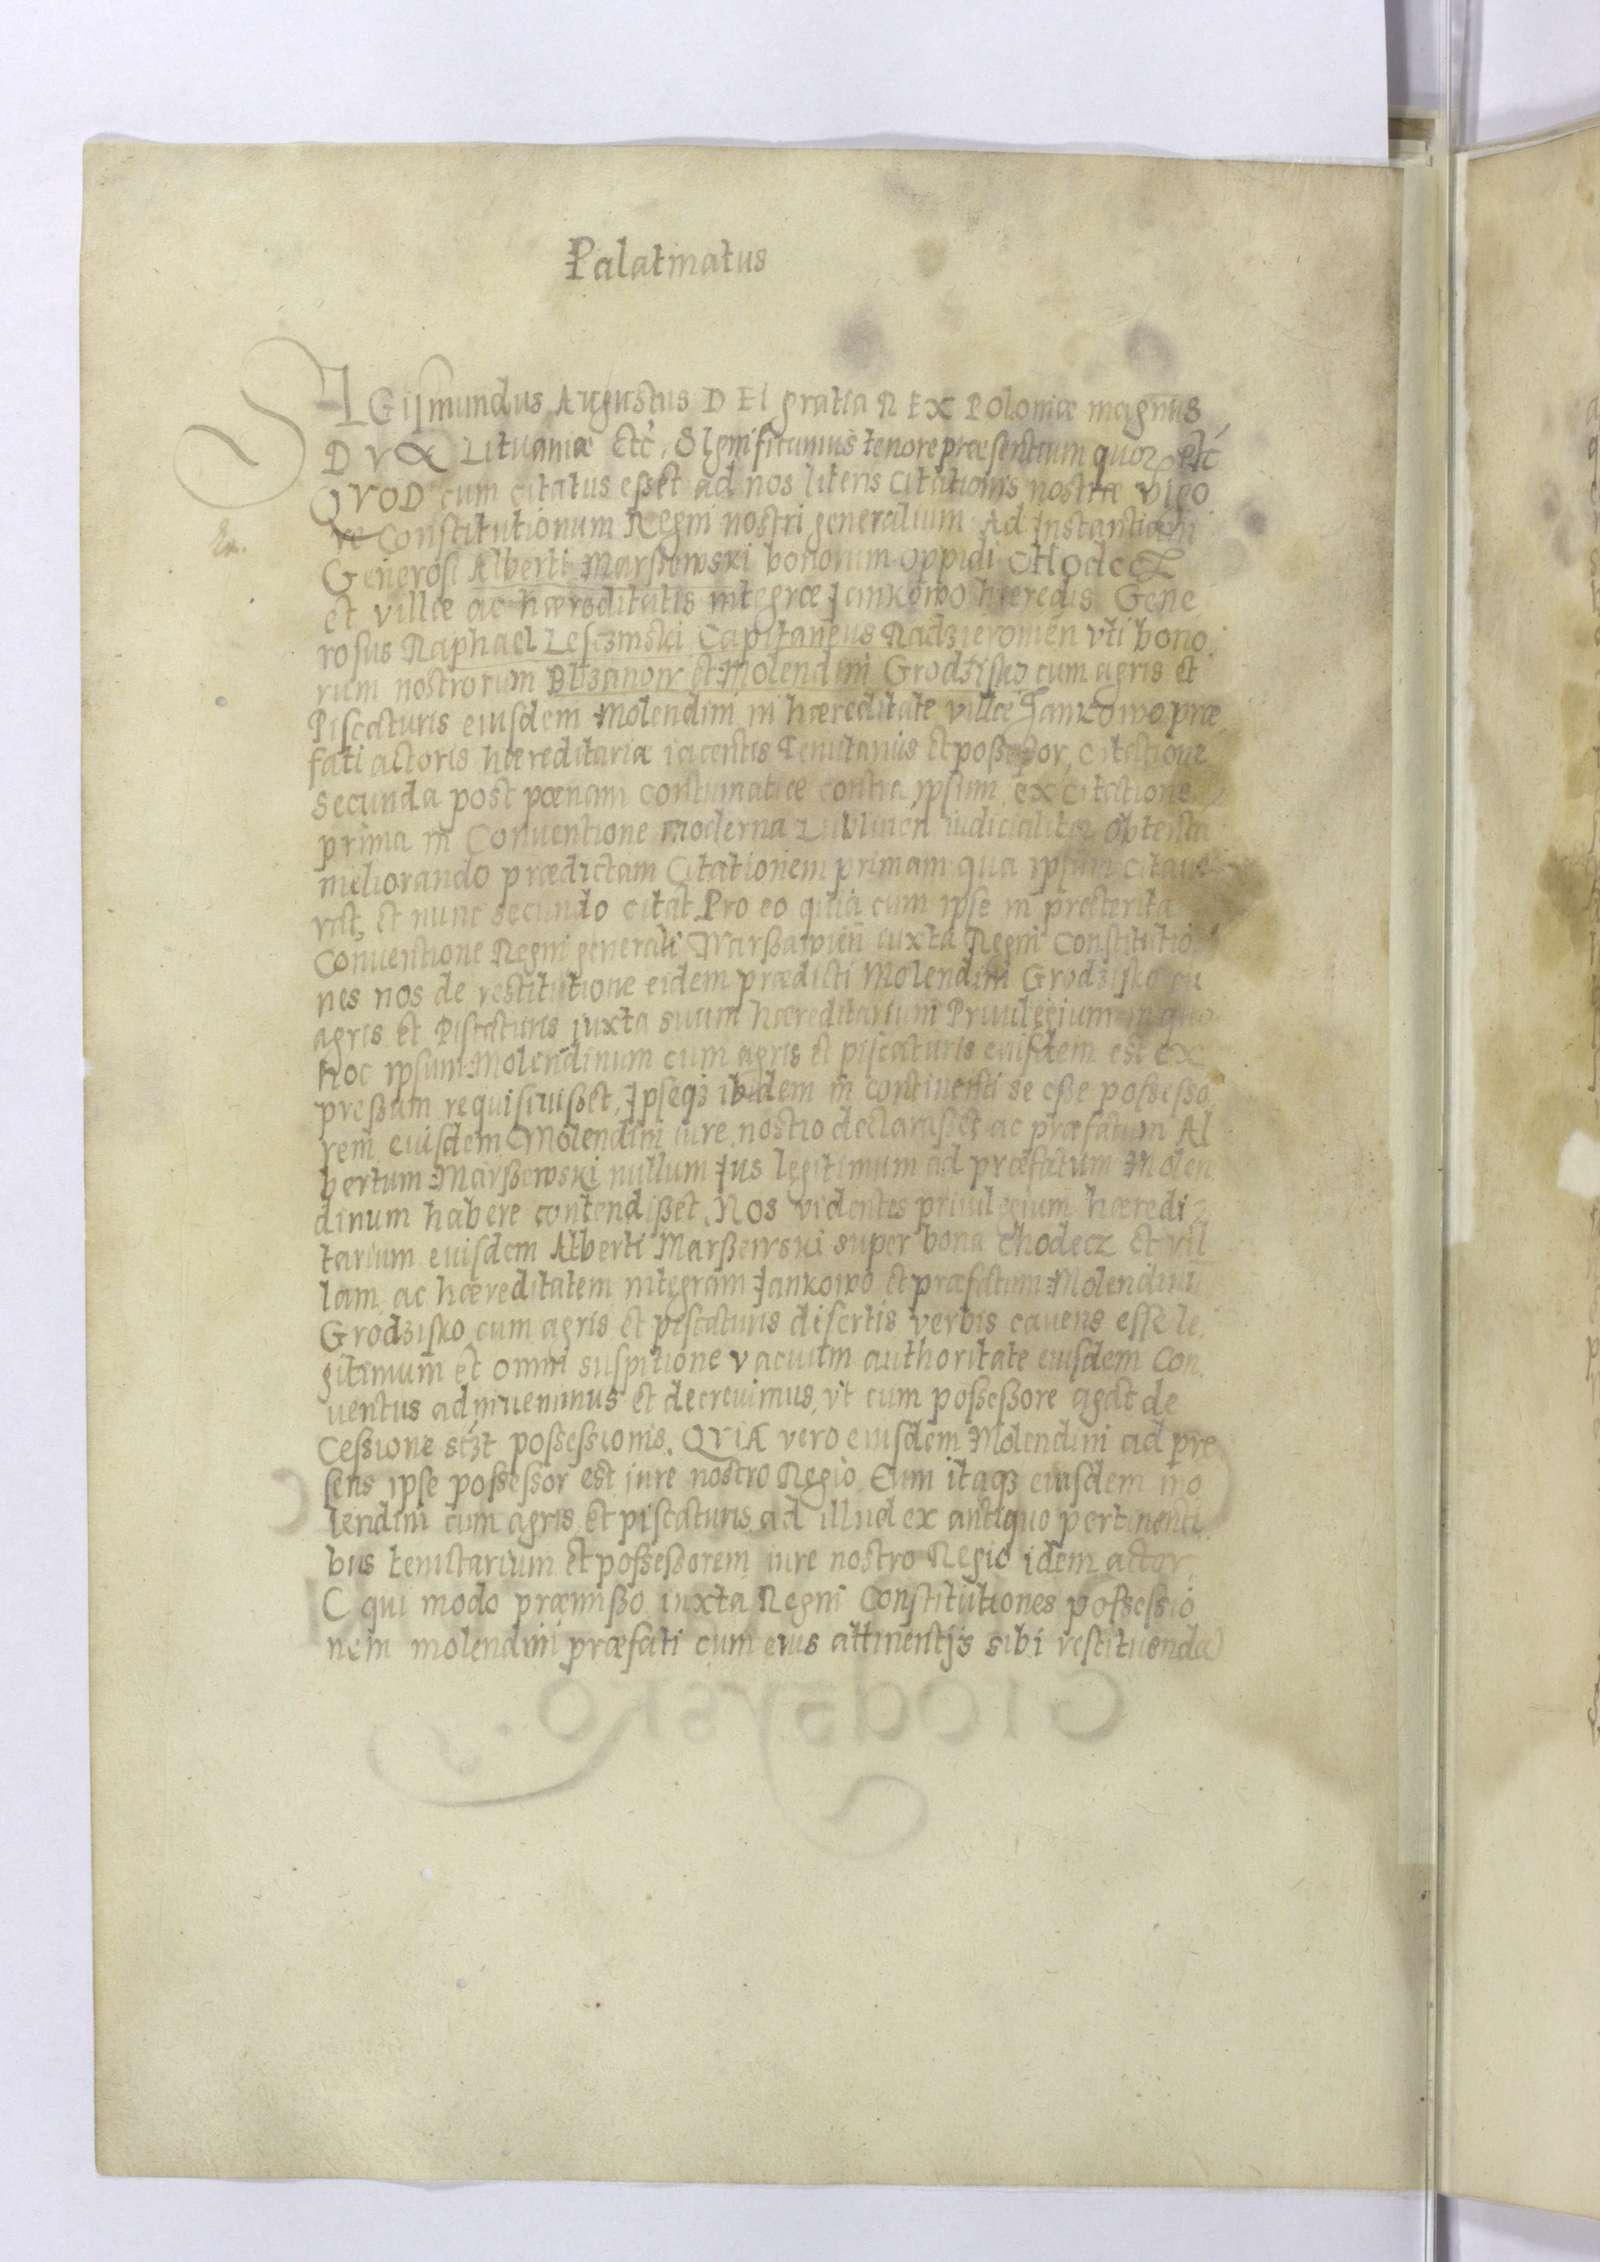 Palatinatus
SIGIſmundus Augustus DEI gratia REX Poloniæ magnus
DVX Lituaniæ etc. Significamus tenore præsentium quoꝝ etc
QVOD cum citatus eßet ad nos literis Citationis nostræ vigo
re Constitutionum Regni nostri generalium Ad Instantiam
Generosi Alberti Marßewski bonorum oppidi CHodecz
et villæ ac hæreditatis integræ Jankowo hæredis Gene
rosus Raphael Lesczinski Capitaneus Radzieiouien vti bono
rum nostrorum et Molendini Grodzisko cum agris et
Piscaturis eiusdem Molendini in hæreditate villæ Jankowo præ
fati actoris hæreditaria iacentis Tenutarius et poßeßor, Citatione
secunda post pœnam contumatiæ contra ipsum ex citatione
prima in Conuentione moderna Lublinen iudicialiter obtenta
meliorando prædictam Citationem primam qua ipsum citaue
rat, et nunc secundo citat Pro eo quia cum ipse in præterita
Conuentione Regni generali Warßauien iuxta Regni Constitutio
nes nos de restitutione eidem prædicti Molendini Grodzisko cu
agris et Piscaturis iuxta suum hæreditarium Priuilegium in quo
hoc ipsum Molendinum cum agris et piscaturis eiusdem est ex
preßum requisiuißet, Ipseqʒ ibidem in continenti se eße poßeßo
rem eiusdem Molendini iure nostro declaraßet ac præfatum Al
bertum Marßewski nullum Jus legitimum ad præfatum Molen
dinum habere contendißet. Nos videntes priuilegium hæredi
tarium eiusdem Alberti Marßewski super bona Chodecz et vil
lam ac hæreditatem integram Jankowo et præfatum Molendinu
Grodzisko cum agris et piscaturis disertis verbis cauens esse le
gitimum et omni suspitione vacuum authoritate eiusdem Con
uentus adinuenimus et decreuimus, vt cum poßeßore agat de
Ceßione poßeßionis. QVIA vero eiusdem Molendini ad præ
sens ipse poßeßor est iure nostro Regio Eum itaqʒ eiusdem mo
lendini cum agris et piscaturis ad illud ex antiquo pertinenti
bus tenutarium et poßeßorem iure nostro Regio idem actor
C qui modo præmißo iuxta Regni Constitutiones poßeßio
nem molendini præfati cum eius attinentijs sibi restituenda
Grodzysko.